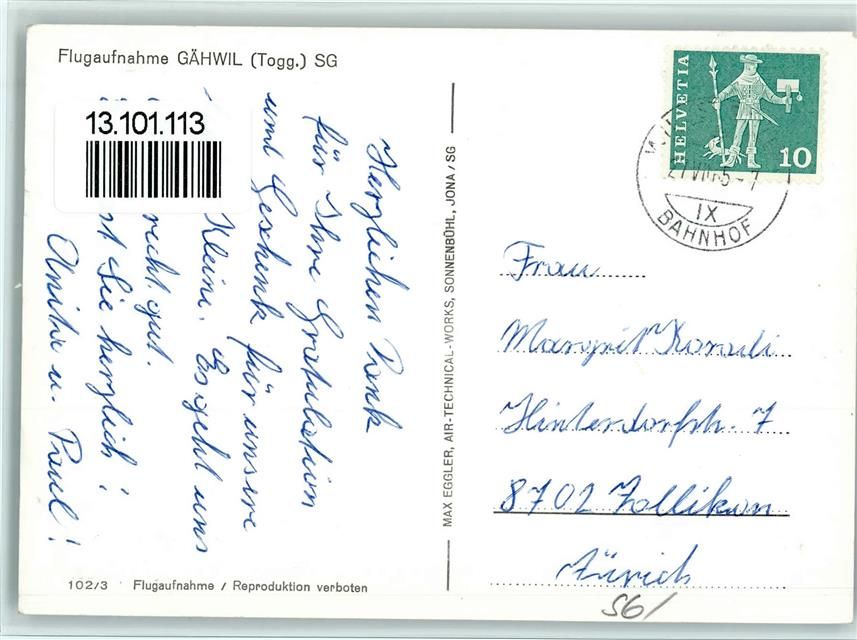 Flugaufnahme GÄHWIL (Togg.) SG
13.101.113
Herzlichen Dank
für Ihre Gratulation
und Geschenk für unsere
Kleine. Es geht uns
recht gut.
Sie herzlich!
Anita u. Paul!
102/3 Flugaufnahme / Reproduktion verboten
MAX EGGLER, AIR-TECHNICAL-WORKS, SONNENBÜHL, JONA / SG
HELVETIA
10
IX
BAHNHOF
Frau
Margrit
Hinterdorfstr. 7
8702 Zollikon
Zürich
56/